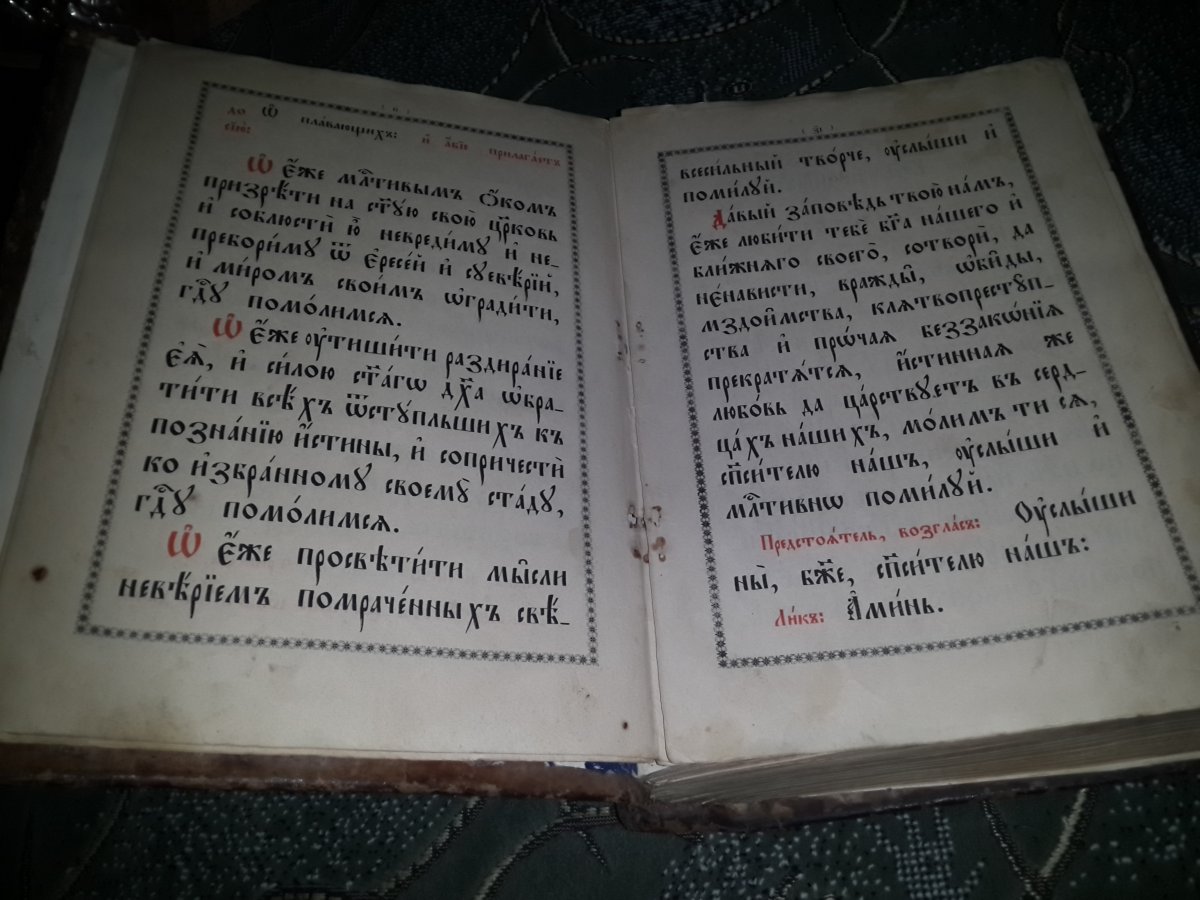 до Ѿ пла́вающихъ: и҆ а҆́бїе прилага́етъ
сїѐ:
Ѡ҆ Е҆́же млⷭ҇тивымъ Ѻ҆́комъ
призрѣ́ти на ст҃ꙋ́ю свою̀ цр҃ковь
и҆ соблюстѝ ю҆̀ невреди́мꙋ и҆ не-
превори́мꙋ ѿ є҆ресе́й и҆ сꙋевѣ́рїй,
и҆ ми́ромъ свои́мъ ѡ҆гради́ти,
гдⷭ҇ꙋ помо́лимсѧ.
Ѡ҆ Е҆́же ᲂу҆тиши́ти раздира́нїе
є҆ѧ̀, и҆ си́лою ст҃а́гѡ дх҃а ѡ҆бра-
ти́ти всѣ́хъ ѿстꙋ́пльшихъ къ
позна́нїю и҆́стины, и҆ сопричестѝ
ко и҆збра́нномꙋ своемꙋ̀ ста́дꙋ,
гдⷭ҇ꙋ помо́лимсѧ.
Ѡ҆ Е҆́же просвѣти́ти мы̑сли
невѣ́рїемъ помраче́нныхъ свѣ́-
всеси́льный тво́рче, ᲂу҆слы́ши и҆
поми́лꙋй.
Да́вый за́повѣдь твою̀ на́мъ,
є҆́же люби́ти тебѐ бг҃а на́шего и҆
бли́жнѧго своего̀, сотворѝ, да
не́нависти, вражды̑, ѡ҆би̑ды,
мздои̑мства, клѧтвопрестꙋп-
ства и҆ прѡ́чаѧ беззакѡ́нїѧ
прекратѧ́тсѧ, и҆́стиннаѧ же
любо́вь да ца́рствꙋетъ въ серд-
ца́хъ на́шихъ, мо́лимъ ти сѧ,
сп҃си́телю на́шъ, ᲂу҆слы́ши и҆
млⷭ҇тивнѡ поми́лꙋй.
Предстоѧ́тель, возгла́съ: Оу҆слы́ши
ны̀, бж҃е, сп҃си́телю на́шъ:
Ли́къ: А҆ми́нь.